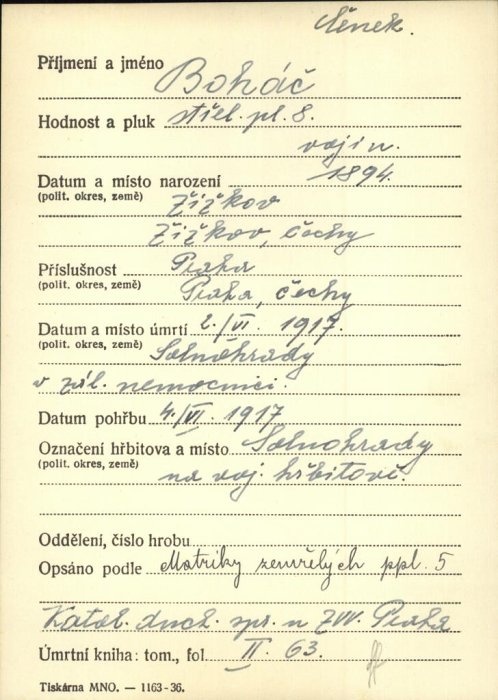 Čeněk.
Příjmení a jméno Boháč
Hodnost a pluk střel. pl. 8.
vojín.
Datum a místo narození 1894.
(polit. okres, země) Žižkov
Žižkov, Čechy
Příslušnost Praha
(polit. okres, země) Praha, Čechy
Datum a místo úmrtí 2./VI. 1917.
(polit. okres, země) Solnohrady
v zál. nemocnici.
Datum pohřbu 4./VI. 1917
Označení hřbitova a místo Solnohrady
(polit. okres, země) na voj. hřbitově.
Oddělení, číslo hrobu
Opsáno podle Matriky zemřelých ppl. 5
Katol. duch. spr. u ZVV. Praha
Úmrtní kniha: tom., fol. II. 63.
Tiskárna MNO. — 1163-36.